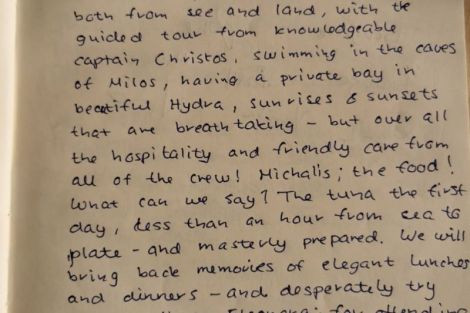 both from see and land, with the
guided tour from knowledgeable
captain Christos, swimming in the caves
of Milos, having a private bay in
beatiful Hydra, sunrises & sunsets
that are breathtaking - but over all
the hospitality and friendly care from
all of the crew! Michalis; the food!
What can we say? The tuna the first
day, less than an hour from sea to
plate - and masterly prepared. We will
bring back memories of elegant lunches
and dinners - and desperately try